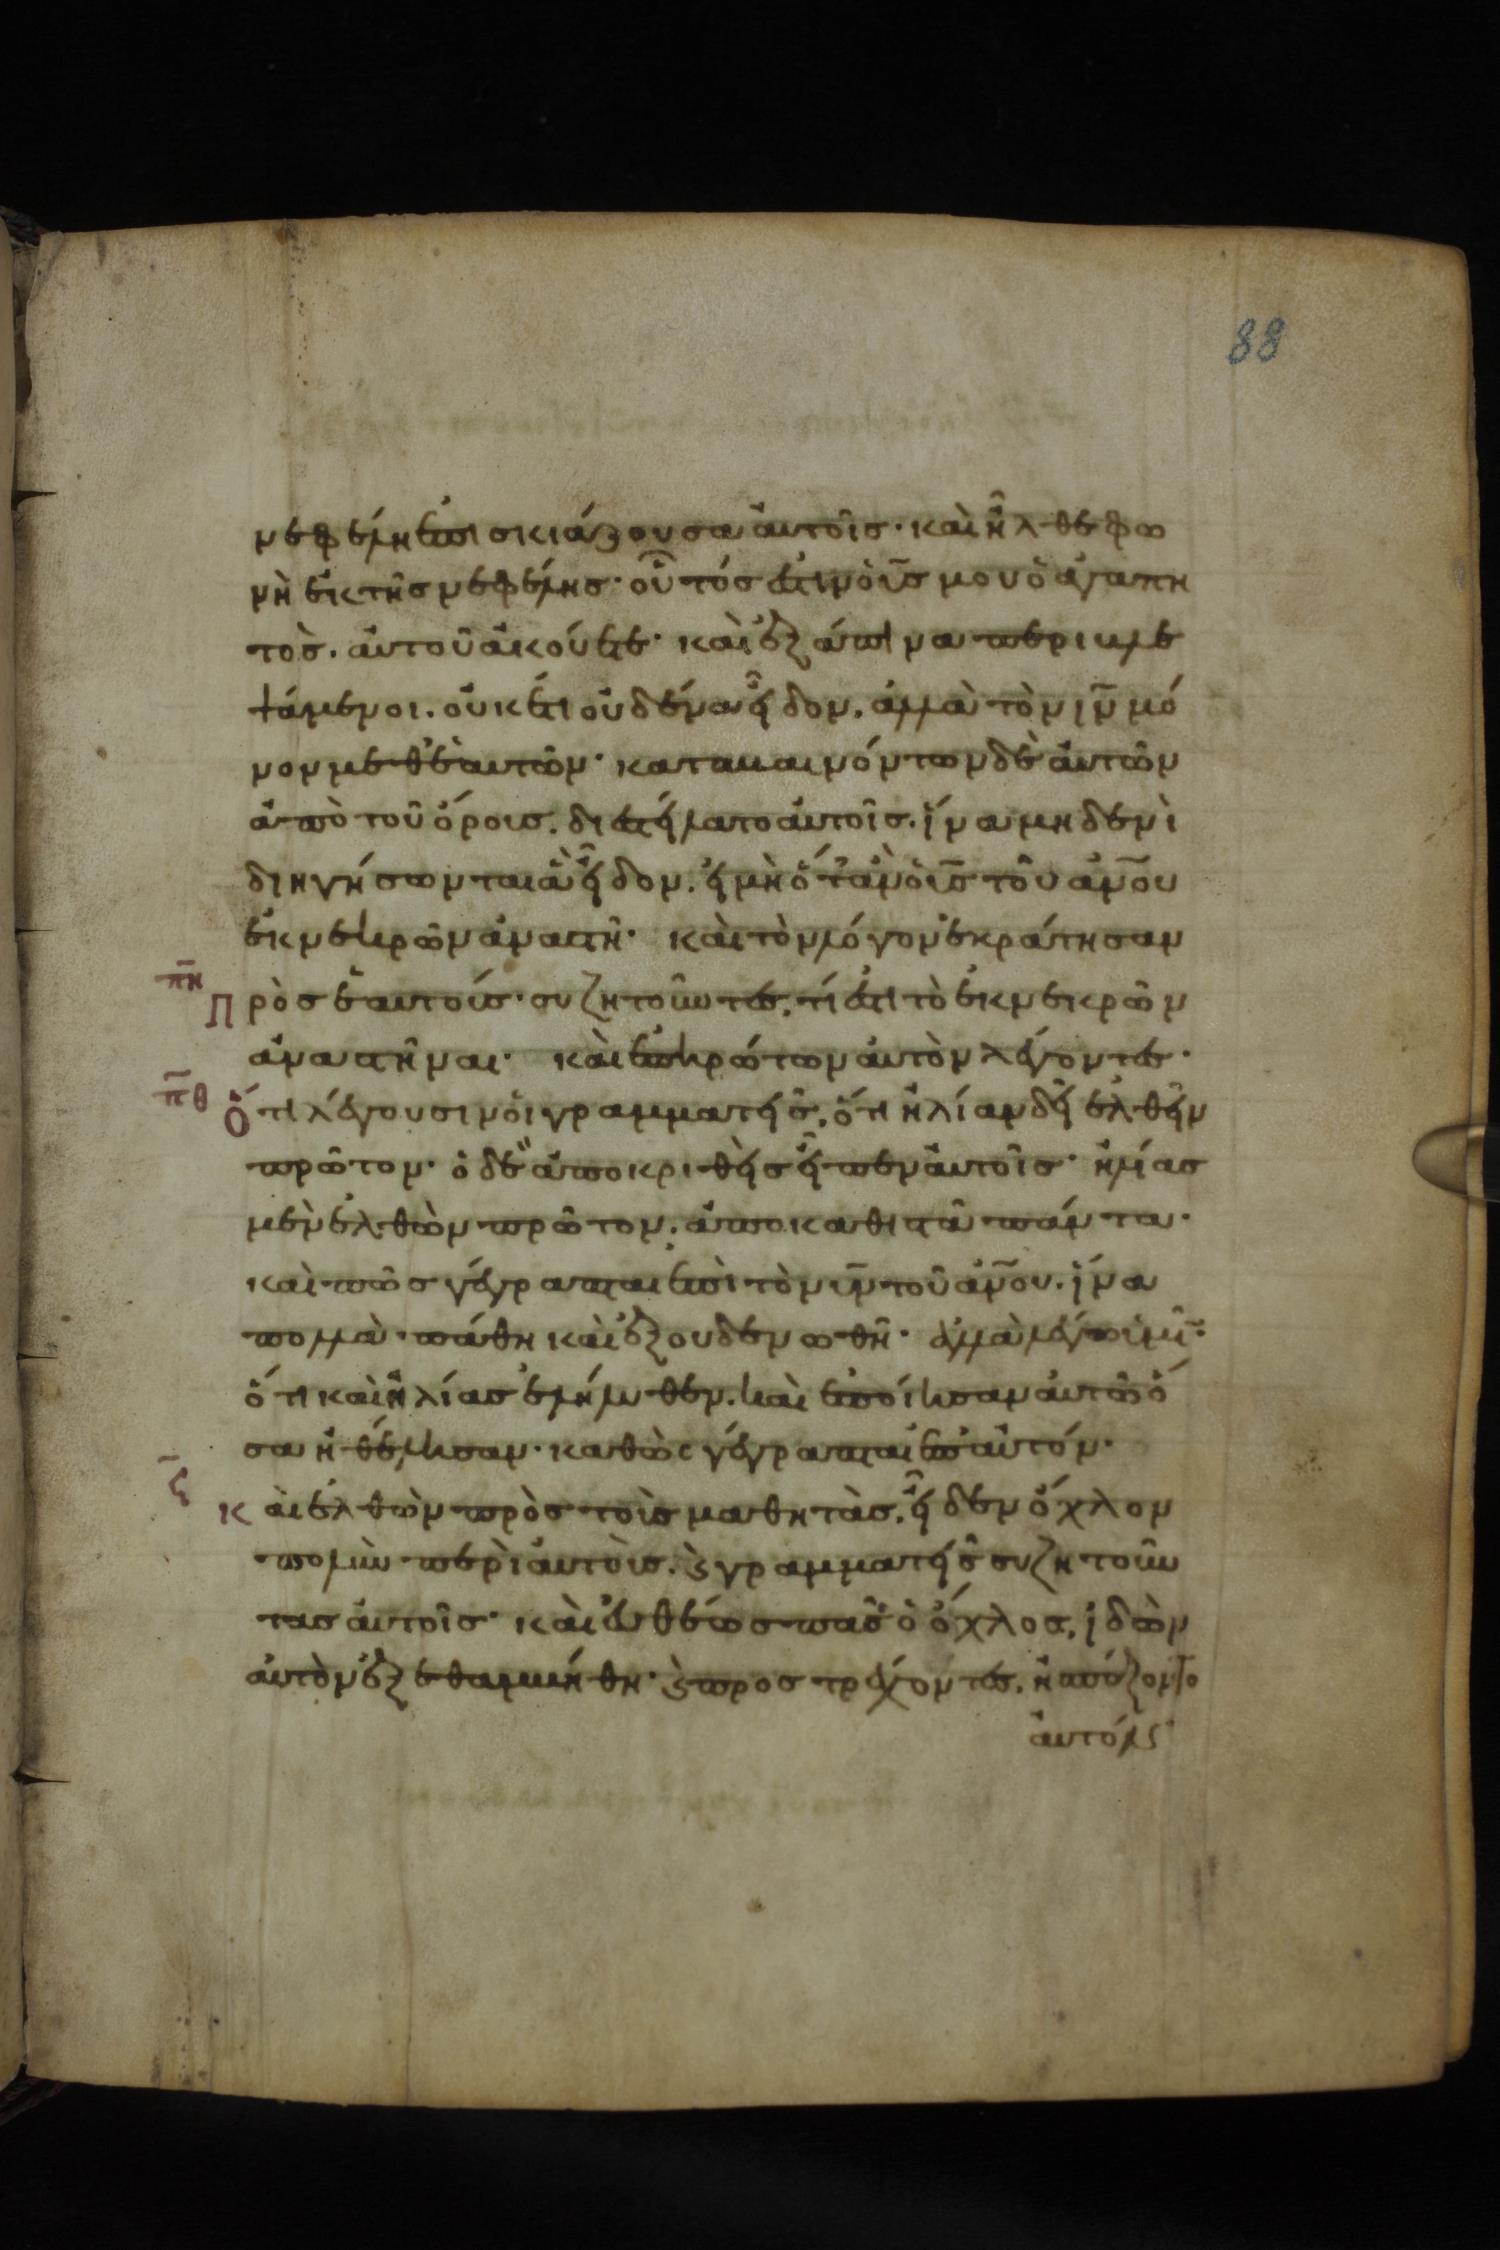 88
νεφέλη ἐπισκιάζουσα αὐτοῖς· καὶ ἦλθε φω
νὴ ἐκ τῆς νεφέλης· οὗτός ἐστιν ὁ υ̅ς̅ μου ὁ ἀγαπη
τὸς. αὐτοῦ ἀκούετε· καὶ ἐξάπινα περιβλε
ψάμενοι. οὐκέτι οὐδένα εἶδον. ἀλλὰ τὸν ι̅ν̅ μό
νον μεθ ἑαυτῶν· καταβαινόντων δὲ αὐτῶν
ἀπὸ τοῦ ὄρους. διεστείλατο αὐτοῖς. ἵνα μηδενὶ
διηγήσωνται ἃ εἶδον. εἰ μὴ ὅταν ὁ υ̅ς̅ τοῦ α̅ν̅ου
ἐκ νεκρῶν ἀναστῆ· καὶ τὸν λόγον ἐκράτησαν
π̅η̅
Πρὸς ἑαυτούς· συζητοῦντες, τί ἐστι τὸ ἐκ νεκρῶν
ἀναστῆναι· καὶ ἐπηρώτων αὐτὸν λέγοντες·
π̅θ̅
Ὅτι λέγουσιν οἱ γραμματεῖς, ὅτι ἠλίαν δεῖ ἐλθεῖν
πρῶτον· ὁ δὲ ἀποκριθεὶς εἶπεν αὐτοῖς· ἠλίας
μὲν ἐλθὼν πρῶτον. ἀποκαθιστᾶ πάντα·
καὶ πῶς γέγραπται ἐπὶ τὸν υ̅ν̅ τοῦ α̅ν̅ου. ἵνα
πολλὰ πάθη καὶ ἐξουδενωθῆ· ἀλλὰ λέγω ὑμῖν·
ὅτι καὶ ἠλίας ἐλήλυθεν. καὶ ἐποίησαν αὐτῶ ὅ
σα ἠθέλησαν· καθὼς γέγραπται ἐπ αὐτόν·
ϛ̅
Καὶ ἐλθὼν πρὸς τοὺς μαθητὰς, εἶδεν ὄχλον
πολὺν περὶ αὐτοὺς. ϗ γραμματεῖς συζητοῦν
τας αὐτοῖς· καὶ εὐθέως πᾶς ὁ ὄχλος, ἰδὼν
αὐτὸν ἐξεθαμβήθη· ϗ προστρέχοντες, ἠσπάζοντο
αὐτόν